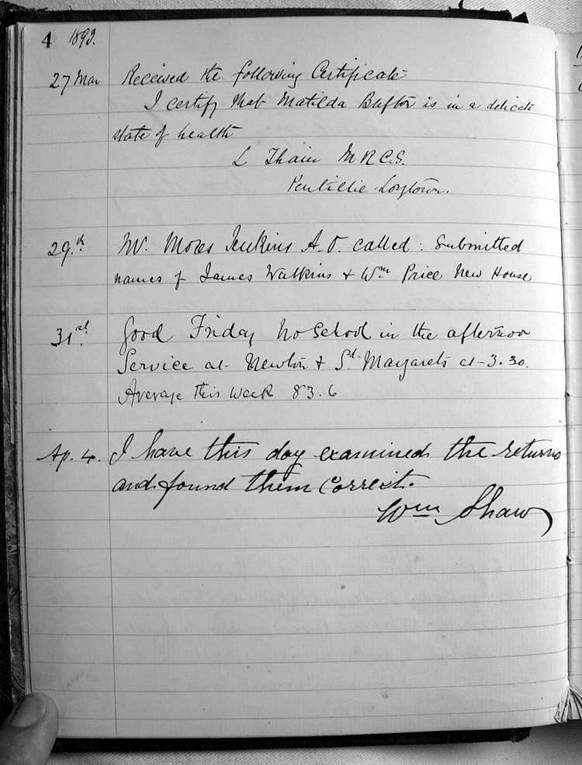 4 1893.
27 Mar Received the following Certificate
I certify that Matilda is in a delicate
state of health
L Thain M.R.C.S.
29th Mr. Moses Jenkins A.O. called. Submitted
names of James Watkins & Wm Price New House
31st Good Friday No School in the afternoon
Service at Newton & St Margarets at 3.30.
Average this week 83.6
Ap. 4. I have this day examined the returns
and found them correct.
Wm Shaw